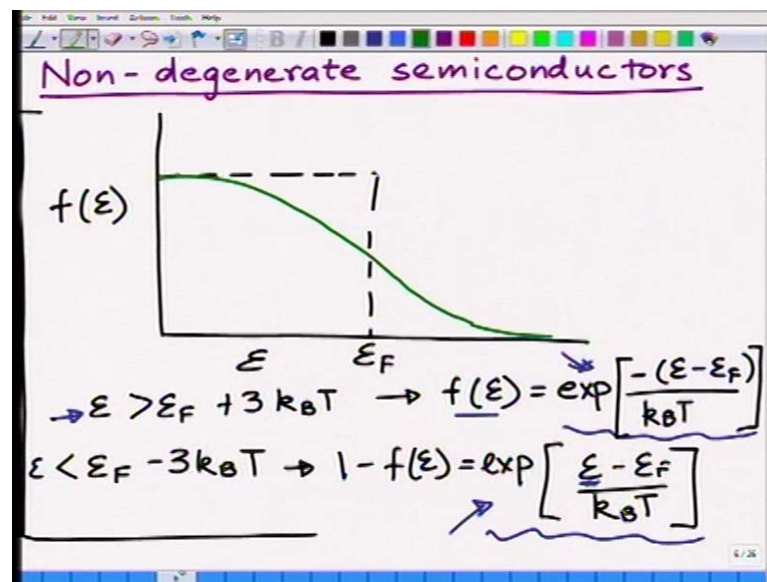 Edit View Insert Actions Tools Help
Non-degenerate semiconductors
f(ε)
ε εF
→ ε > εF + 3 kBT → f(ε) = exp[-(ε-εF)/kBT]
ε < εF - 3kBT → 1 - f(ε) = exp[ε - εF/kBT]
6/26